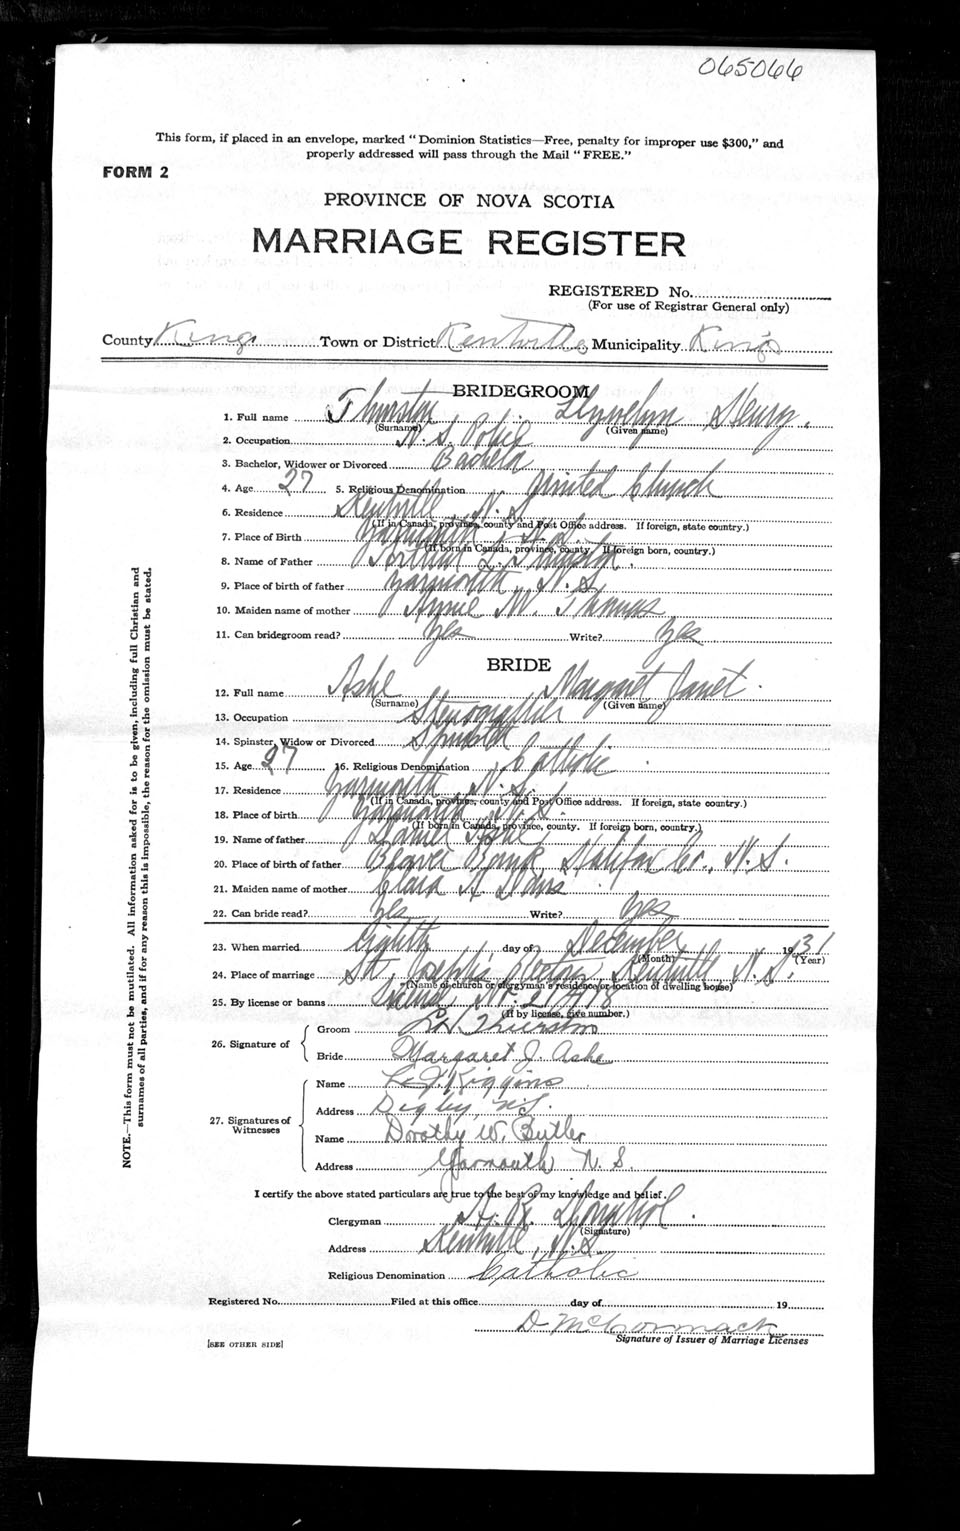 065066
This form, if placed in an envelope, marked "Dominion Statistics—Free, penalty for improper use $300," and
properly addressed will pass through the Mail "FREE."
FORM 2
PROVINCE OF NOVA SCOTIA
MARRIAGE REGISTER
REGISTERED No.
(For use of Registrar General only)
County Kings Town or District Kentville Municipality Kings
BRIDEGROOM
1. Full name Thurston Llywelyn Henry.
(Surname) (Given name)
2. Occupation N. S. Police
3. Bachelor, Widower or Divorced Bachelor
4. Age 27 5. Religious Denomination United Church
6. Residence Kentville N. S.
(If in Canada, province, county and Post Office address. If foreign, state country.)
7. Place of Birth Yarmouth N. S.
(If born in Canada, province, county. If foreign born, country.)
8. Name of Father L. Thurston.
9. Place of birth of father Yarmouth N. S.
10. Maiden name of mother Annie M. Thomas
11. Can bridegroom read? Yes Write? Yes
BRIDE
12. Full name Ashe Margaret Janet.
(Surname) (Given name)
13. Occupation Stenographer
14. Spinster, Widow or Divorced Spinster
15. Age 27 16. Religious Denomination Catholic
17. Residence Yarmouth N. S.
(If in Canada, province, county and Post Office address. If foreign, state country.)
18. Place of birth Yarmouth N. S.
(If born in Canada, province, county. If foreign born, country.)
19. Name of father Daniel Ashe
20. Place of birth of father Beaver Bank Halifax Co., N. S.
21. Maiden name of mother Clara A.
22. Can bride read? Yes Write? Yes
23. When married eighth day of December 1931
(Month) (Year)
24. Place of marriage St. Joseph's Kentville N. S.
(Name of church or clergyman's residence or location of dwelling house)
25. By license or banns No. 21408
(If by license, give number.)
26. Signature of
Groom L. H. Thurston
Bride Margaret J. Ashe
27. Signatures of Witnesses
Name Kiggins
Address Digby, N.S.
Name Dorothy W. Butler
Address Yarmouth N. S.
I certify the above stated particulars are true to the best of my knowledge and belief.
Clergyman A. R. Donahoe.
(Signature)
Address Kentville, N. S.
Religious Denomination Catholic
Registered No. Filed at this office day of 19
D McCormack
Signature of Issuer of Marriage Licenses
[SEE OTHER SIDE]
NOTE.—This form must not be mutilated. All information asked for is to be given, including full Christian and
surnames of all parties, and if for any reason this is impossible, the reason for the omission must be stated.